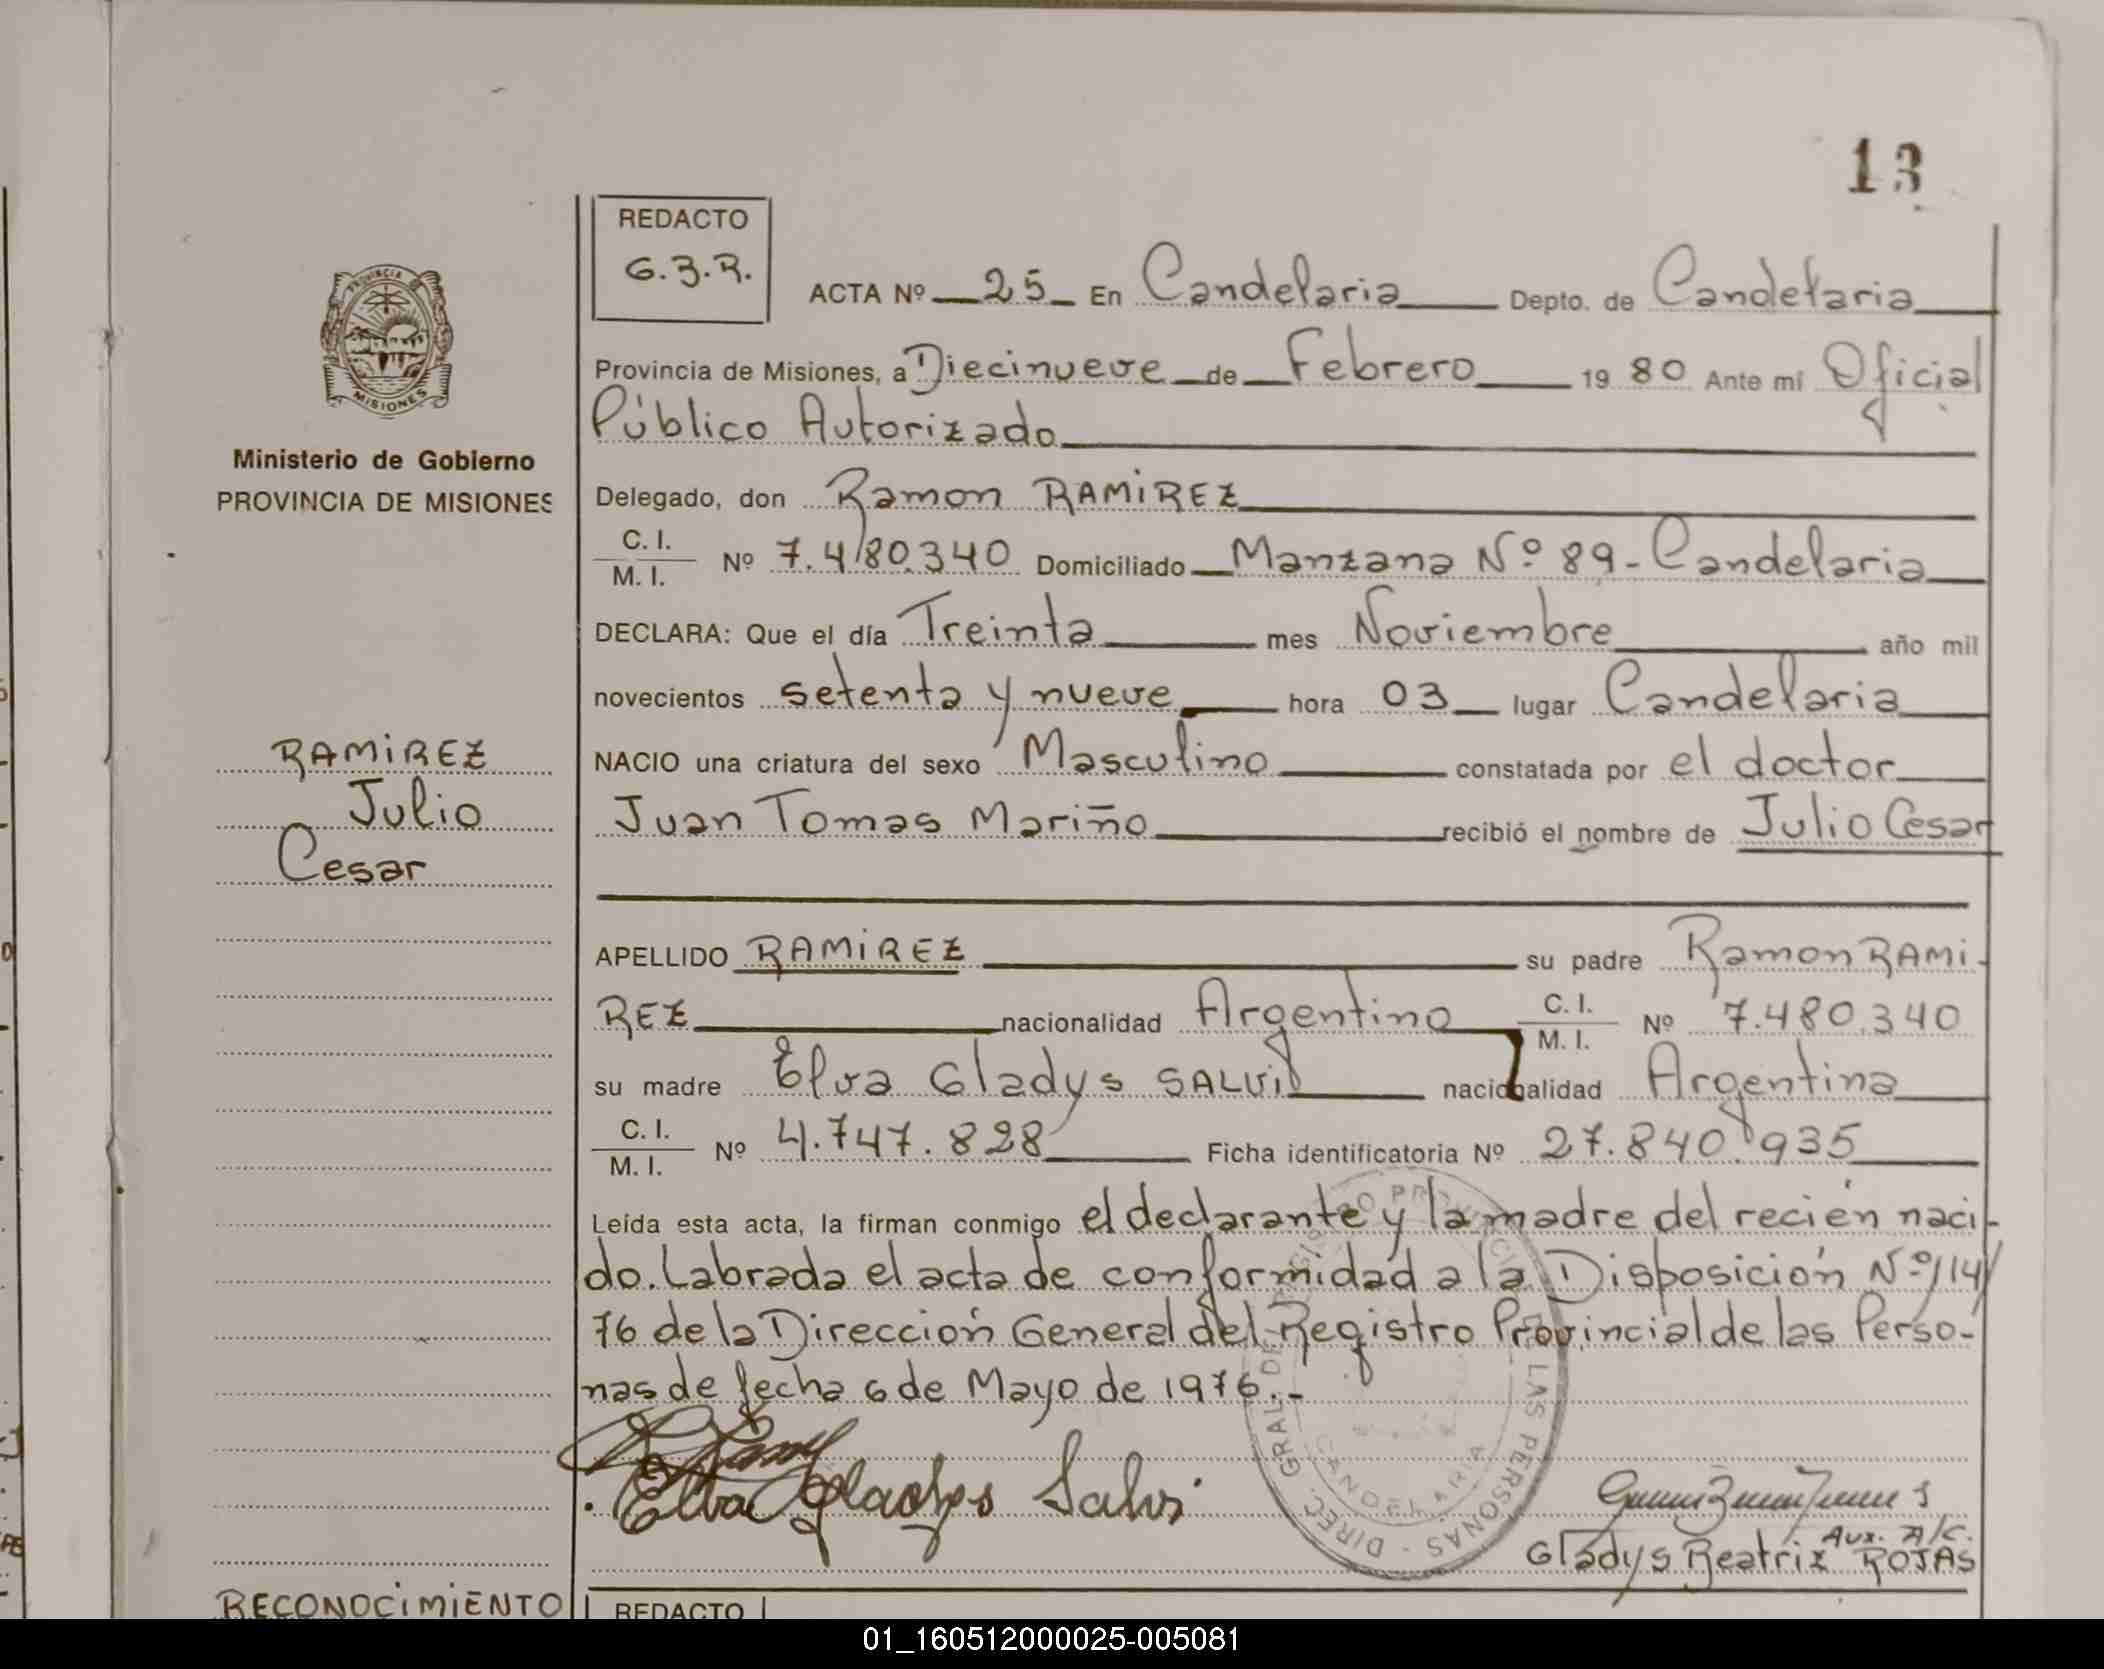 13
REDACTO
G.B.R.
ACTA Nº 25 En Candelaria Depto. de Candelaria
Provincia de Misiones, a Diecinueve de Febrero 19 80 Ante mí Oficial
Público Autorizado
Delegado, don Ramon RAMIREZ
C. I.
M. I. Nº 7.480.340 Domiciliado Manzana Nº 89 - Candelaria
DECLARA: Que el día Treinta mes Noviembre año mil
novecientos setenta y nueve hora 03 lugar Candelaria
NACIO una criatura del sexo Masculino constatada por el doctor
Juan Tomas Mariño recibió el nombre de Julio Cesar
APELLIDO RAMIREZ su padre Ramon RAMI-
REZ nacionalidad Argentino C. I. M. I. Nº 7.480.340
su madre Elva Gladys SALVI nacionalidad Argentina
C. I.
M. I. Nº 4.747.828 Ficha identificatoria Nº 27.840.935
Leída esta acta, la firman conmigo el declarante y la madre del recién naci-
do. Labrada el acta de conformidad a la Disposición Nº 114/
76 de la Dirección General del Registro Provincial de las Perso-
nas de fecha 6 de Mayo de 1976.-
Elva Gladys Salvi
Aux. A/C.
Gladys Beatriz ROJAS
DIREC. GRAL. DE LAS PERSONAS
CANDELARIA
PROVINCIA
MISIONES
Ministerio de Gobierno
PROVINCIA DE MISIONES
RAMIREZ
Julio
Cesar
RECONOCIMIENTO
REDACTO
01_160512000025-005081